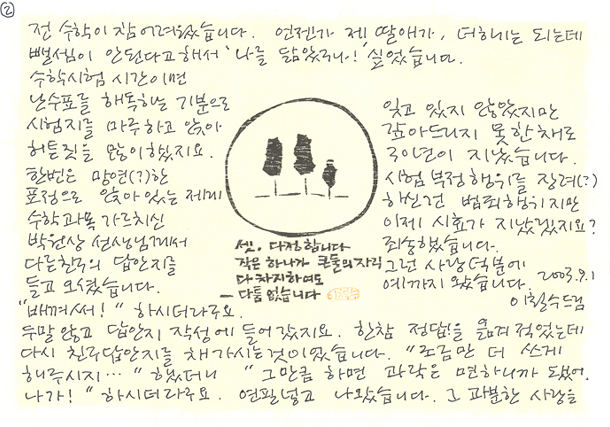 ②
전 수학이 참 어려웠습니다. 언젠가 제 딸애가, 더하기는 되는데
뺄셈이 안된다고 해서 '나를 닮았구나!' 싶었습니다.
수학시험 시간이면
난수표를 해독하는 기분으로
시험지를 마주하고 앉아
허튼짓을 많이 했지요.
한번은 망연(?)한
표정으로 앉아 있는 제게
수학과목 가르치신
박원상 선생님께서
다른친구의 답안지를
들고 오셨습니다.
"베껴써!" 하시더라구요.
두말 않고 답안지 작성에 들어갔지요. 한참 정답!을 옮겨 적었는데
다시 친구답안지를 채 가시는 것이었습니다. "조금만 더 쓰게
해주시지…" 했더니 "그만큼 하면 과락은 면하니까 됐어.
나가!" 하시더라구요. 연필 넣고 나왔습니다. 그 과분한 사랑을
잊고 있지 않았지만
갚아드리지 못한 채로
30년이 지났습니다.
시험 부정행위를 장려(?)
하신건 범죄행위지만
이제 시효가 지났겠지요?
죄송했습니다.
그런 사랑 덕분에
예까지 왔습니다. 2003.9.1
이철수 드림
셋. 다정합니다
작은 하나가 큰 둘의 자리
다 차지하여도
— 다툼 없습니다